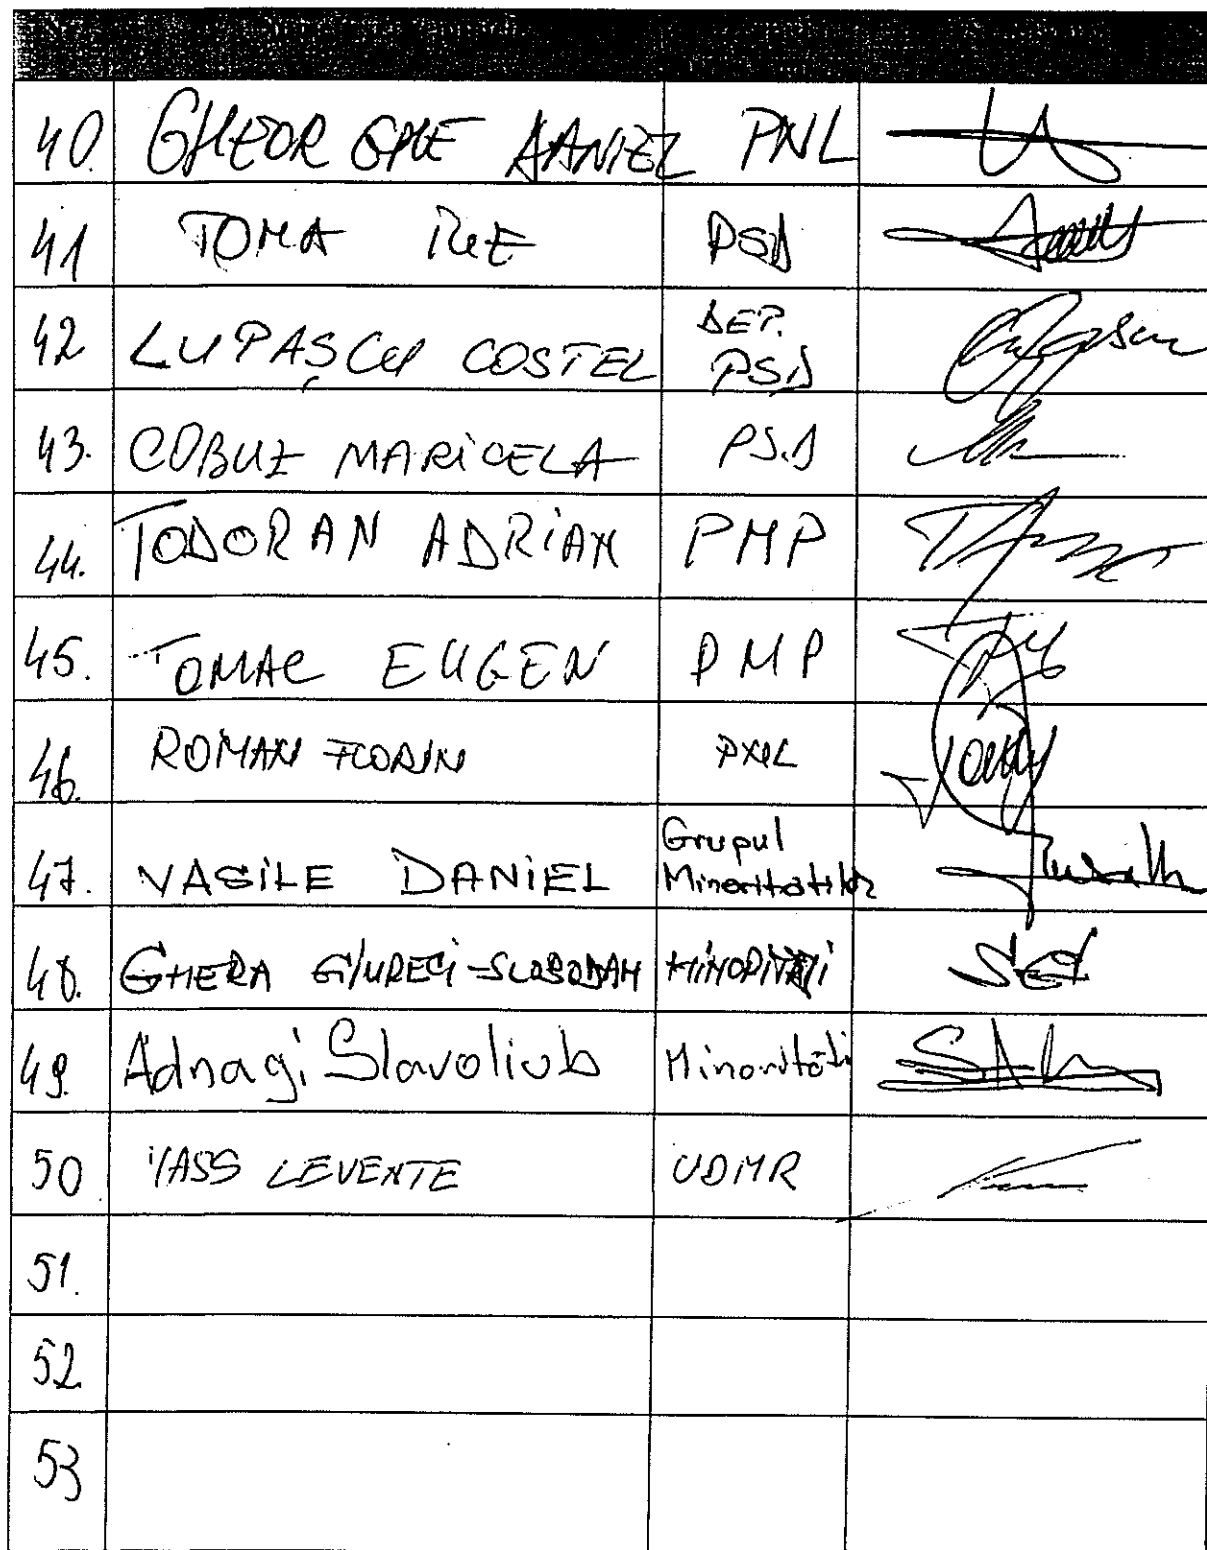 40. GHEORGHE DANIEL PNL
41 TOMA ILIE PSD
42 LUPAȘCU COSTEL DEP. PSD
43. COBUZ MARICELA PS.D
44. TODORAN ADRIAN PMP
45. TOMAC EUGEN PMP
46. ROMAN FLORIN PNL
47. VASILE DANIEL Grupul Minoritatilor
48. GHERA GIURECI-SLOBODAN MINORITĂȚI
49. Adnagi Slavoliub Minoritati
50 VASS LEVENTE UDMR
51.
52
53